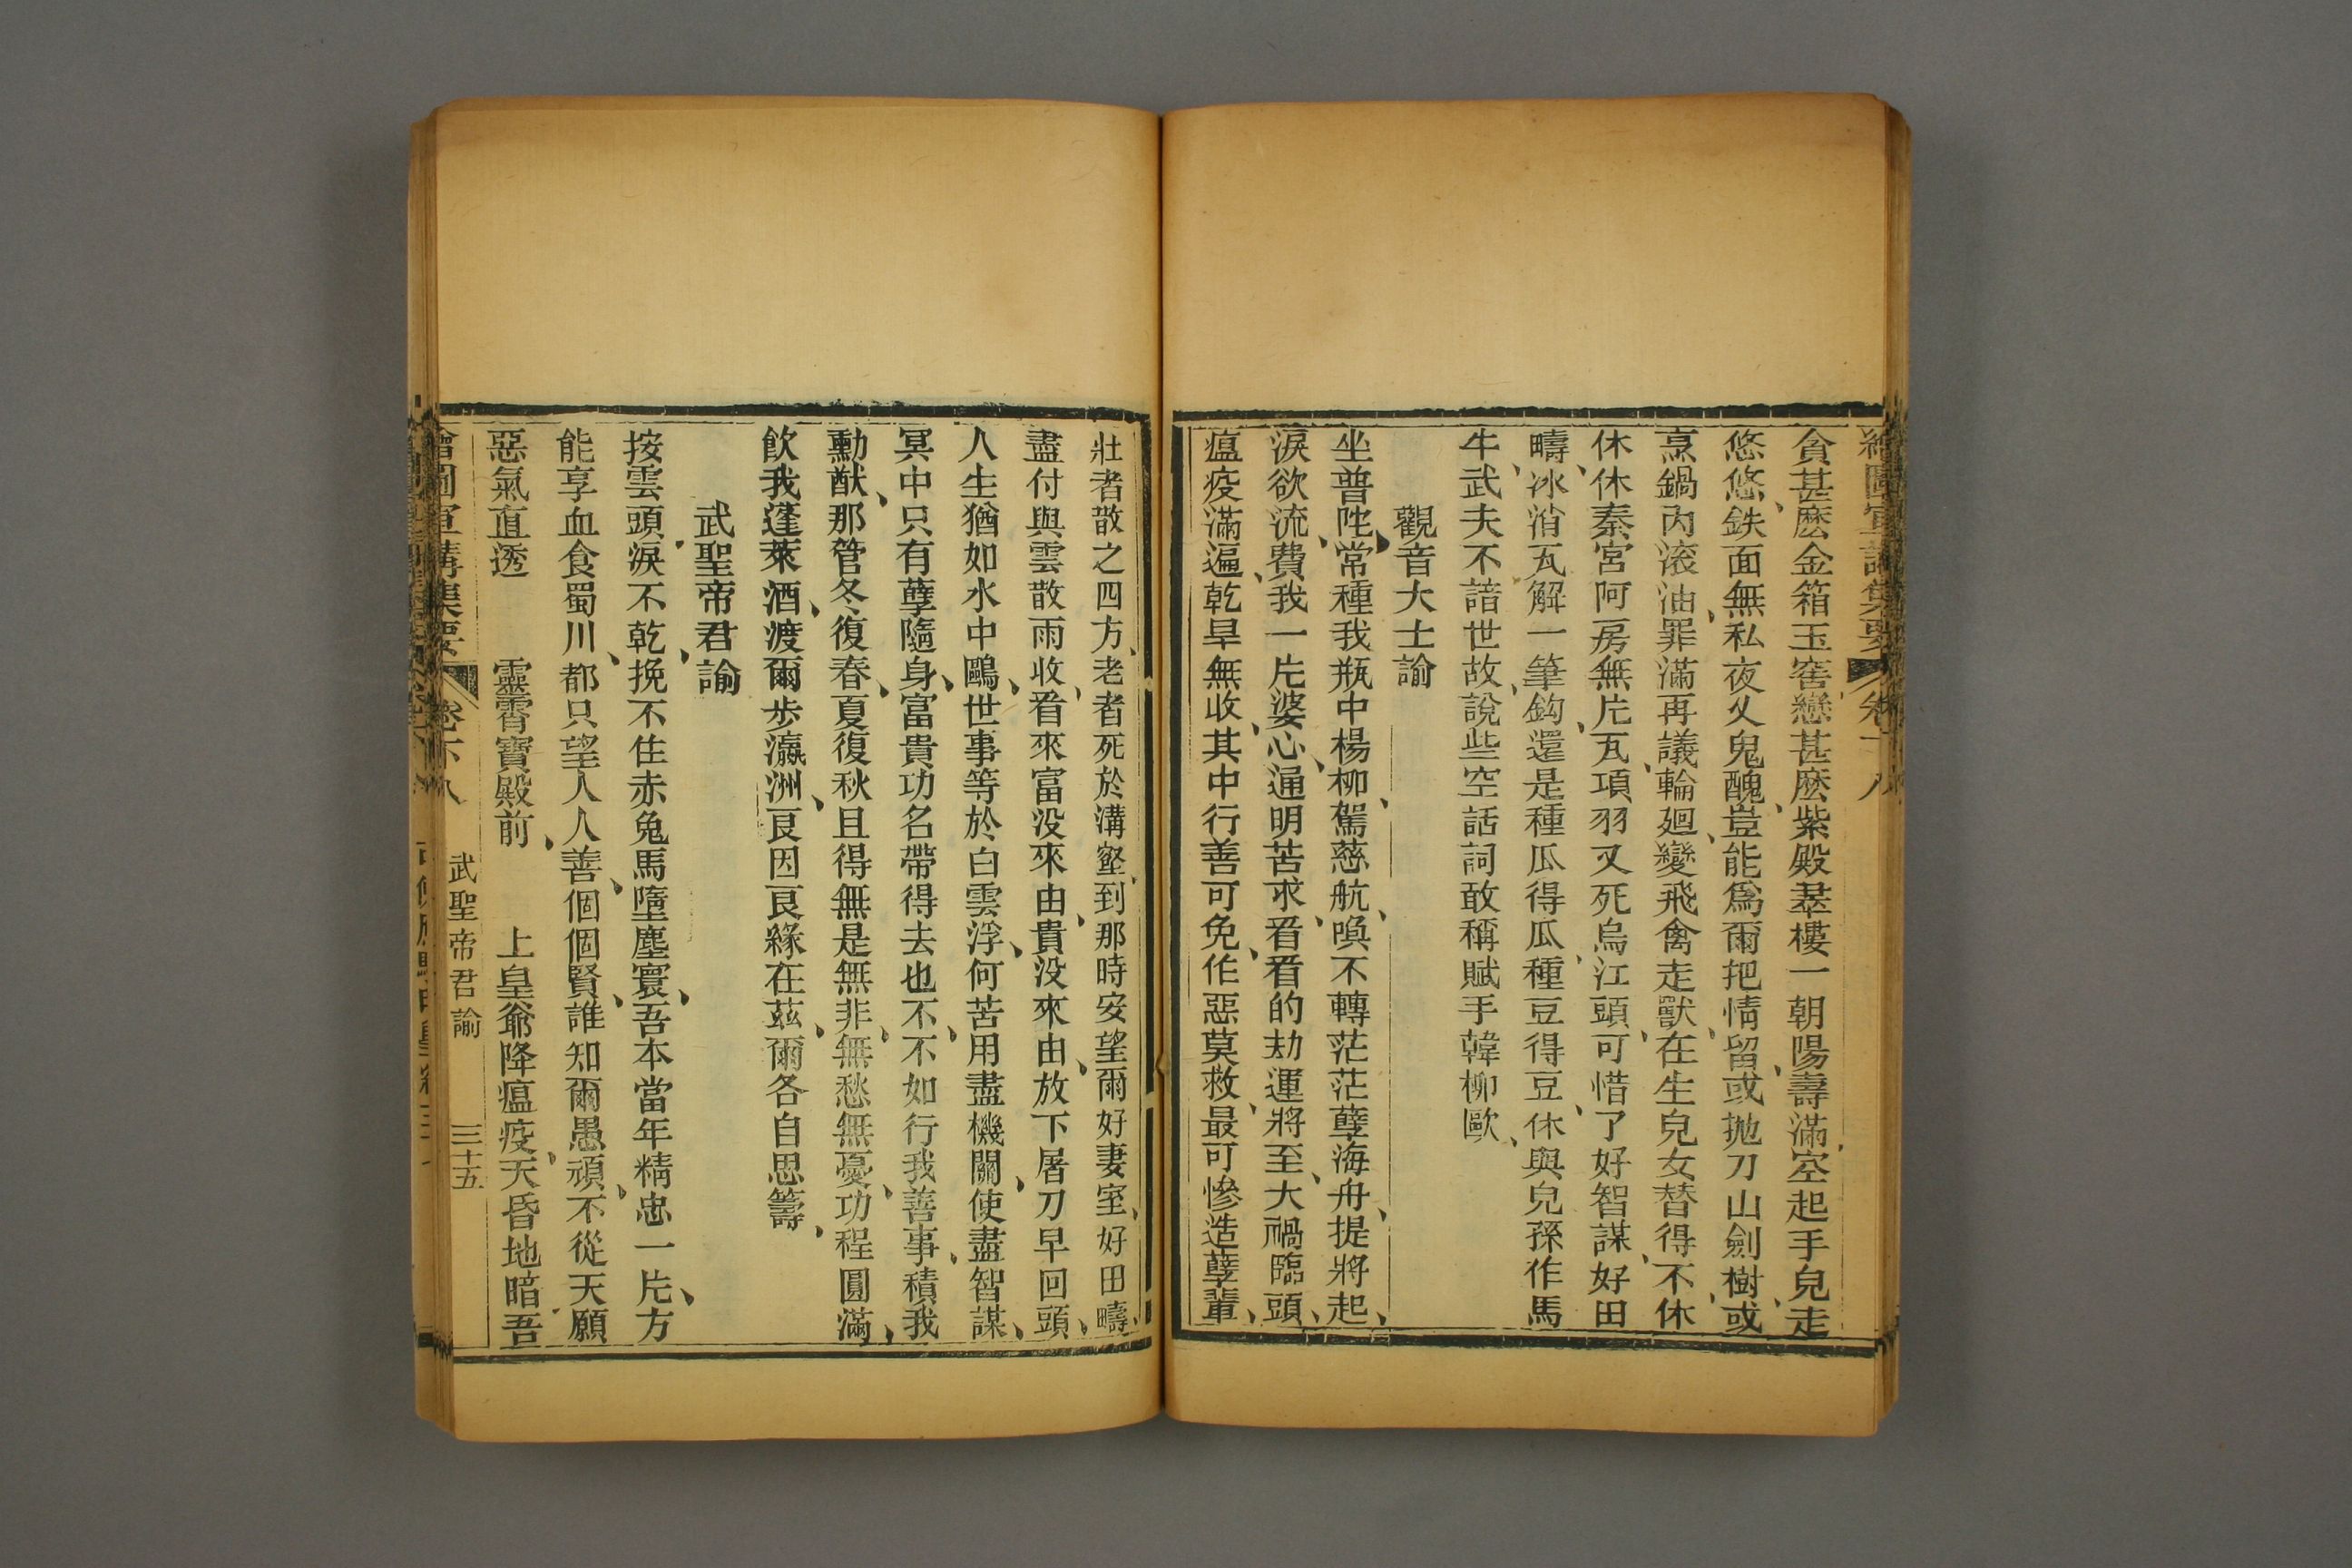 繪圖宣講集要 卷下八
貪甚麽金箱玉窖、戀甚麽紫殿翠樓、一朝陽壽滿、空起手兒走
悠悠、鉄面無私夜乂鬼醜、豈能爲爾把情留、或拋刀山劍樹、或
烹鍋內滚油、罪滿再議輪廻、變飛禽走獸、在生兒女替得不休
休休、秦宮阿房無片瓦、項羽又死烏江頭、可惜了好智謀、好田
疇、冰消瓦解一筆鈎、還是種瓜得瓜、種豆得豆、休與兒孫作馬
牛、武夫不諳世故、說些空話詞、敢稱賦手韓柳歐、
觀音大士諭
坐普陀、常種我瓶中楊柳、駕慈航、喚不轉茫茫孽海舟、提將起、
淚欲流、費我一片婆心、逼明苦求、看看的劫運將至、大禍臨頭、
瘟疫滿遍、乾旱無收、其中行善可免、作惡莫救、最可慘造孽輩、
壯者散之四方、老者死於溝壑、到那時安望爾好妻室、好田疇、
盡付與雲散雨收、看來富没來由、貴没來由、放下屠刀早回頭、
人生猶如水中鷗、世事等於白雲浮、何苦用盡機關、使盡智謀、
冥中只有孽隨身、富貴功名帶得去也不、不如行我善事、積我
勳猷、那管冬復春、夏復秋、且得無是無非、無愁無憂、功程圓滿、
飲我蓬萊酒、渡爾步瀛洲、良因良緣在茲、爾各自思籌、
武聖帝君諭
按雲頭、淚不乾、挽不住赤兔馬墮塵寰、吾本當年精忠一片、方
能享血食蜀川、都只望人人善、個個賢、誰知爾愚頑、不從天願
惡氣直透 靈霄寶殿前、 上皇爺降瘟疫、天昏地暗、吾
繪圖宣講集要 卷下八 武聖帝君諭 三十五